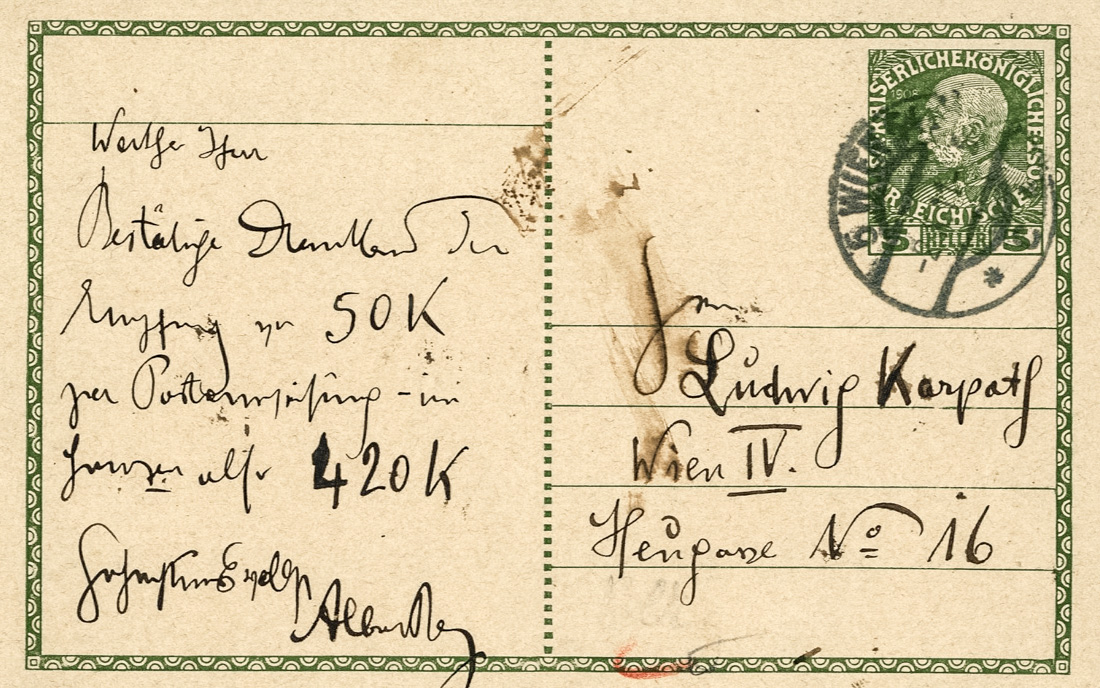 Werther Herr
Bestätige Dankend den
Empfang von 50 K
per Postanweisung - im
Ganzen also 420 K
Hochachtungsvoll
KAISERLICHE KÖNIGLICHE
ÖSTERREICHISCHE
1908
5 HELLER 5
WIEN
Herrn
Ludwig Karpath
Wien IV.
Heugasse No 16